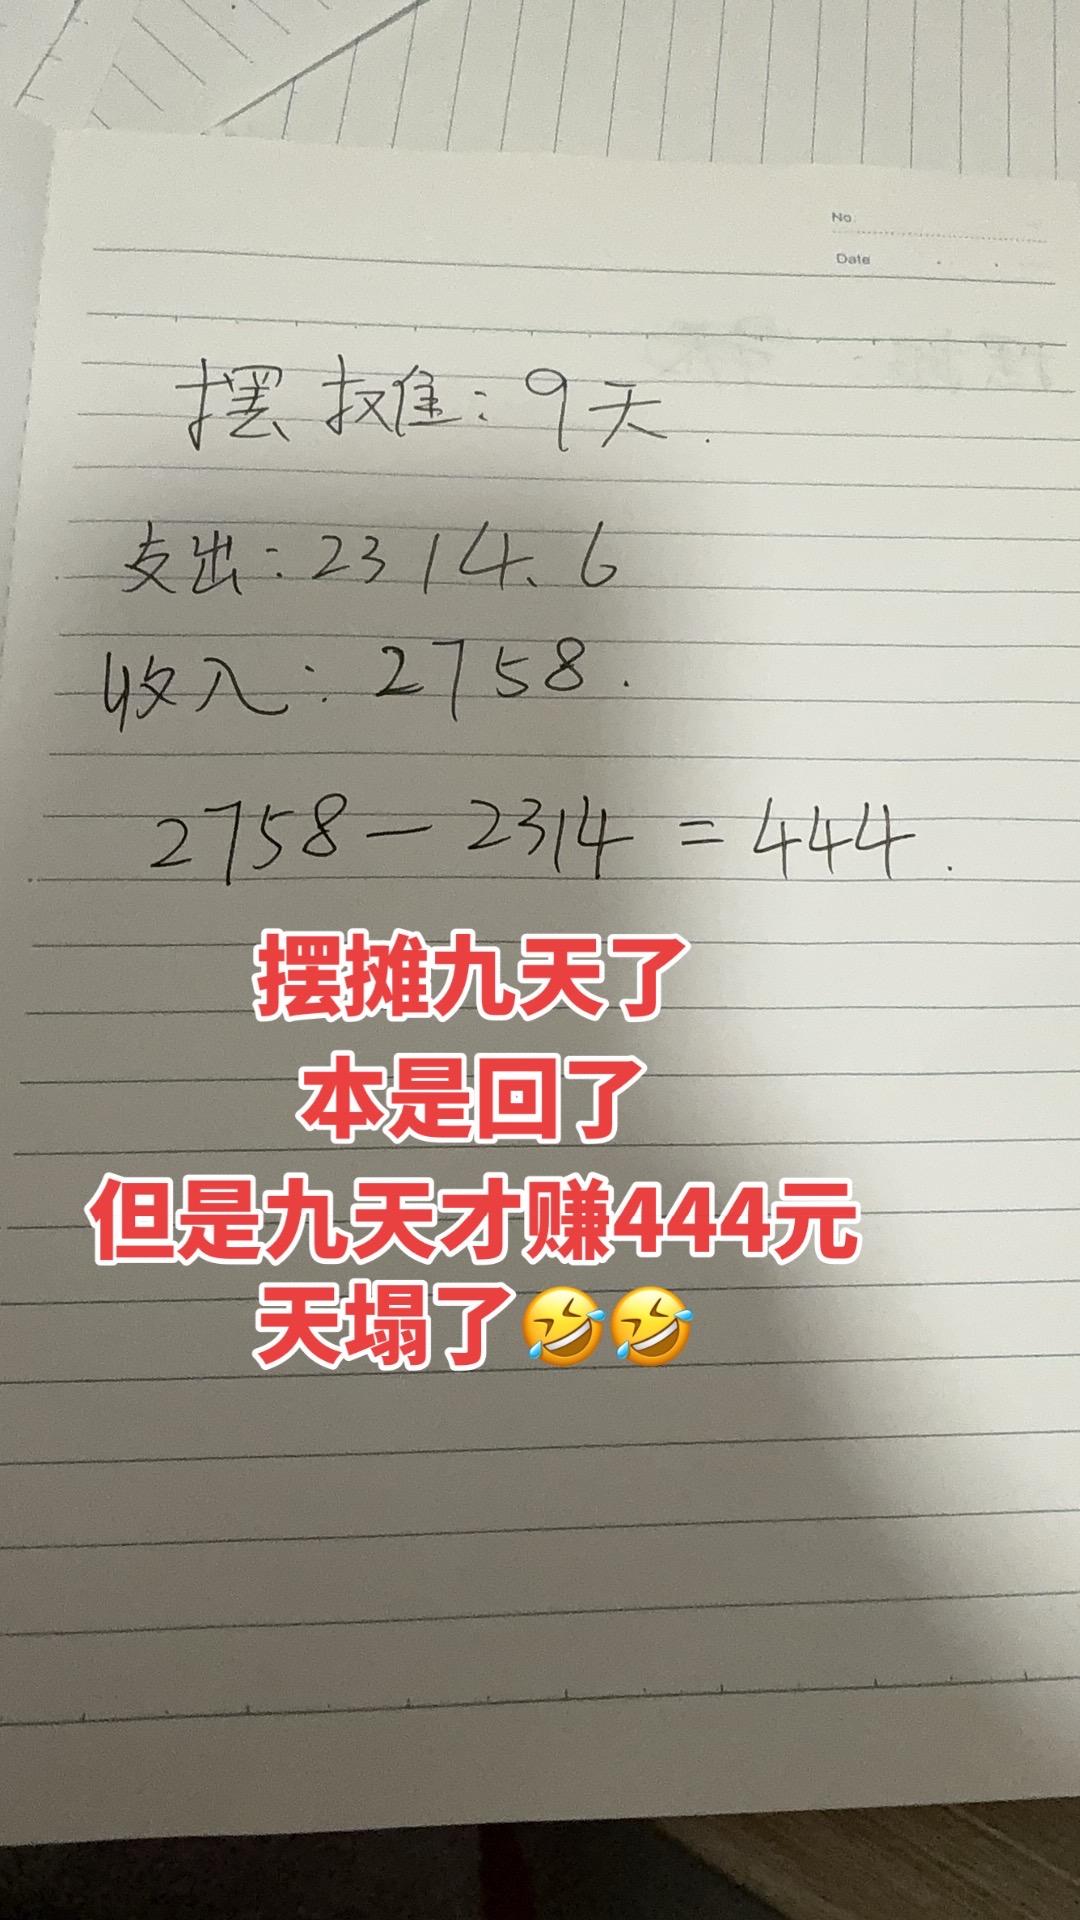 No.
Date
摆摊：9天.
支出：2314.6
收入：2758.
2758-2314=444.
摆摊九天了
本是回了
但是九天才赚444元
天塌了🤣🤣